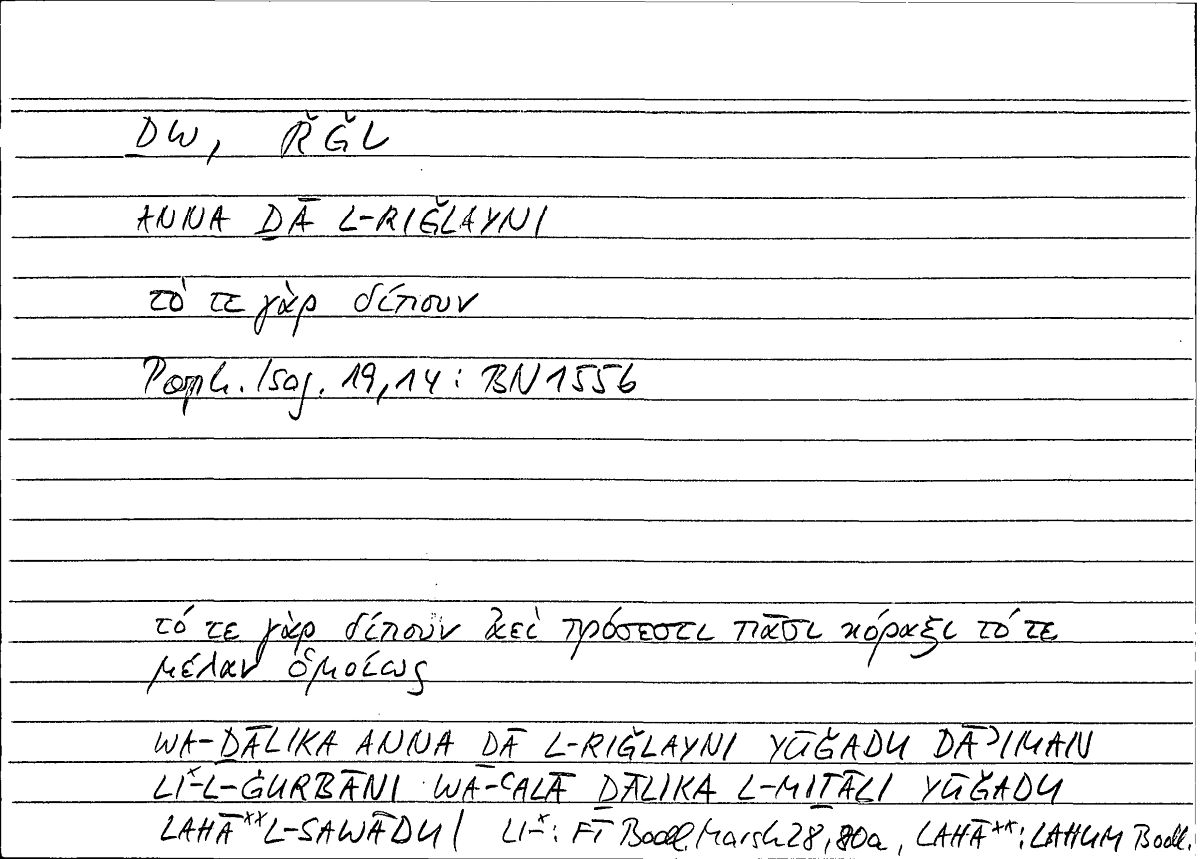 ḎW, RǦL
ANNA ḎĀ L-RIǦLAYNI
τό τε γὰρ δίπουν
Porph. Isag. 19,14 : BN 1556
τό τε γὰρ δίπουν ἀεὶ πρόσεστι πᾶσι κόραξι τό τε
μέλαν ὁμοίως
WA-ḎĀLIKA ANNA ḎĀ L-RIǦLAYNI YŪǦADU DĀʾIMAN
LI-*L-ĠURBĀNI WA-ʿALĀ ḎĀLIKA L-MIṮĀLI YŪǦADU
LAHĀ** L-SAWĀDU | LI-*: FĪ Bodl. Marsh 28, 80a, LAHĀ**: LAHUM Bodl.